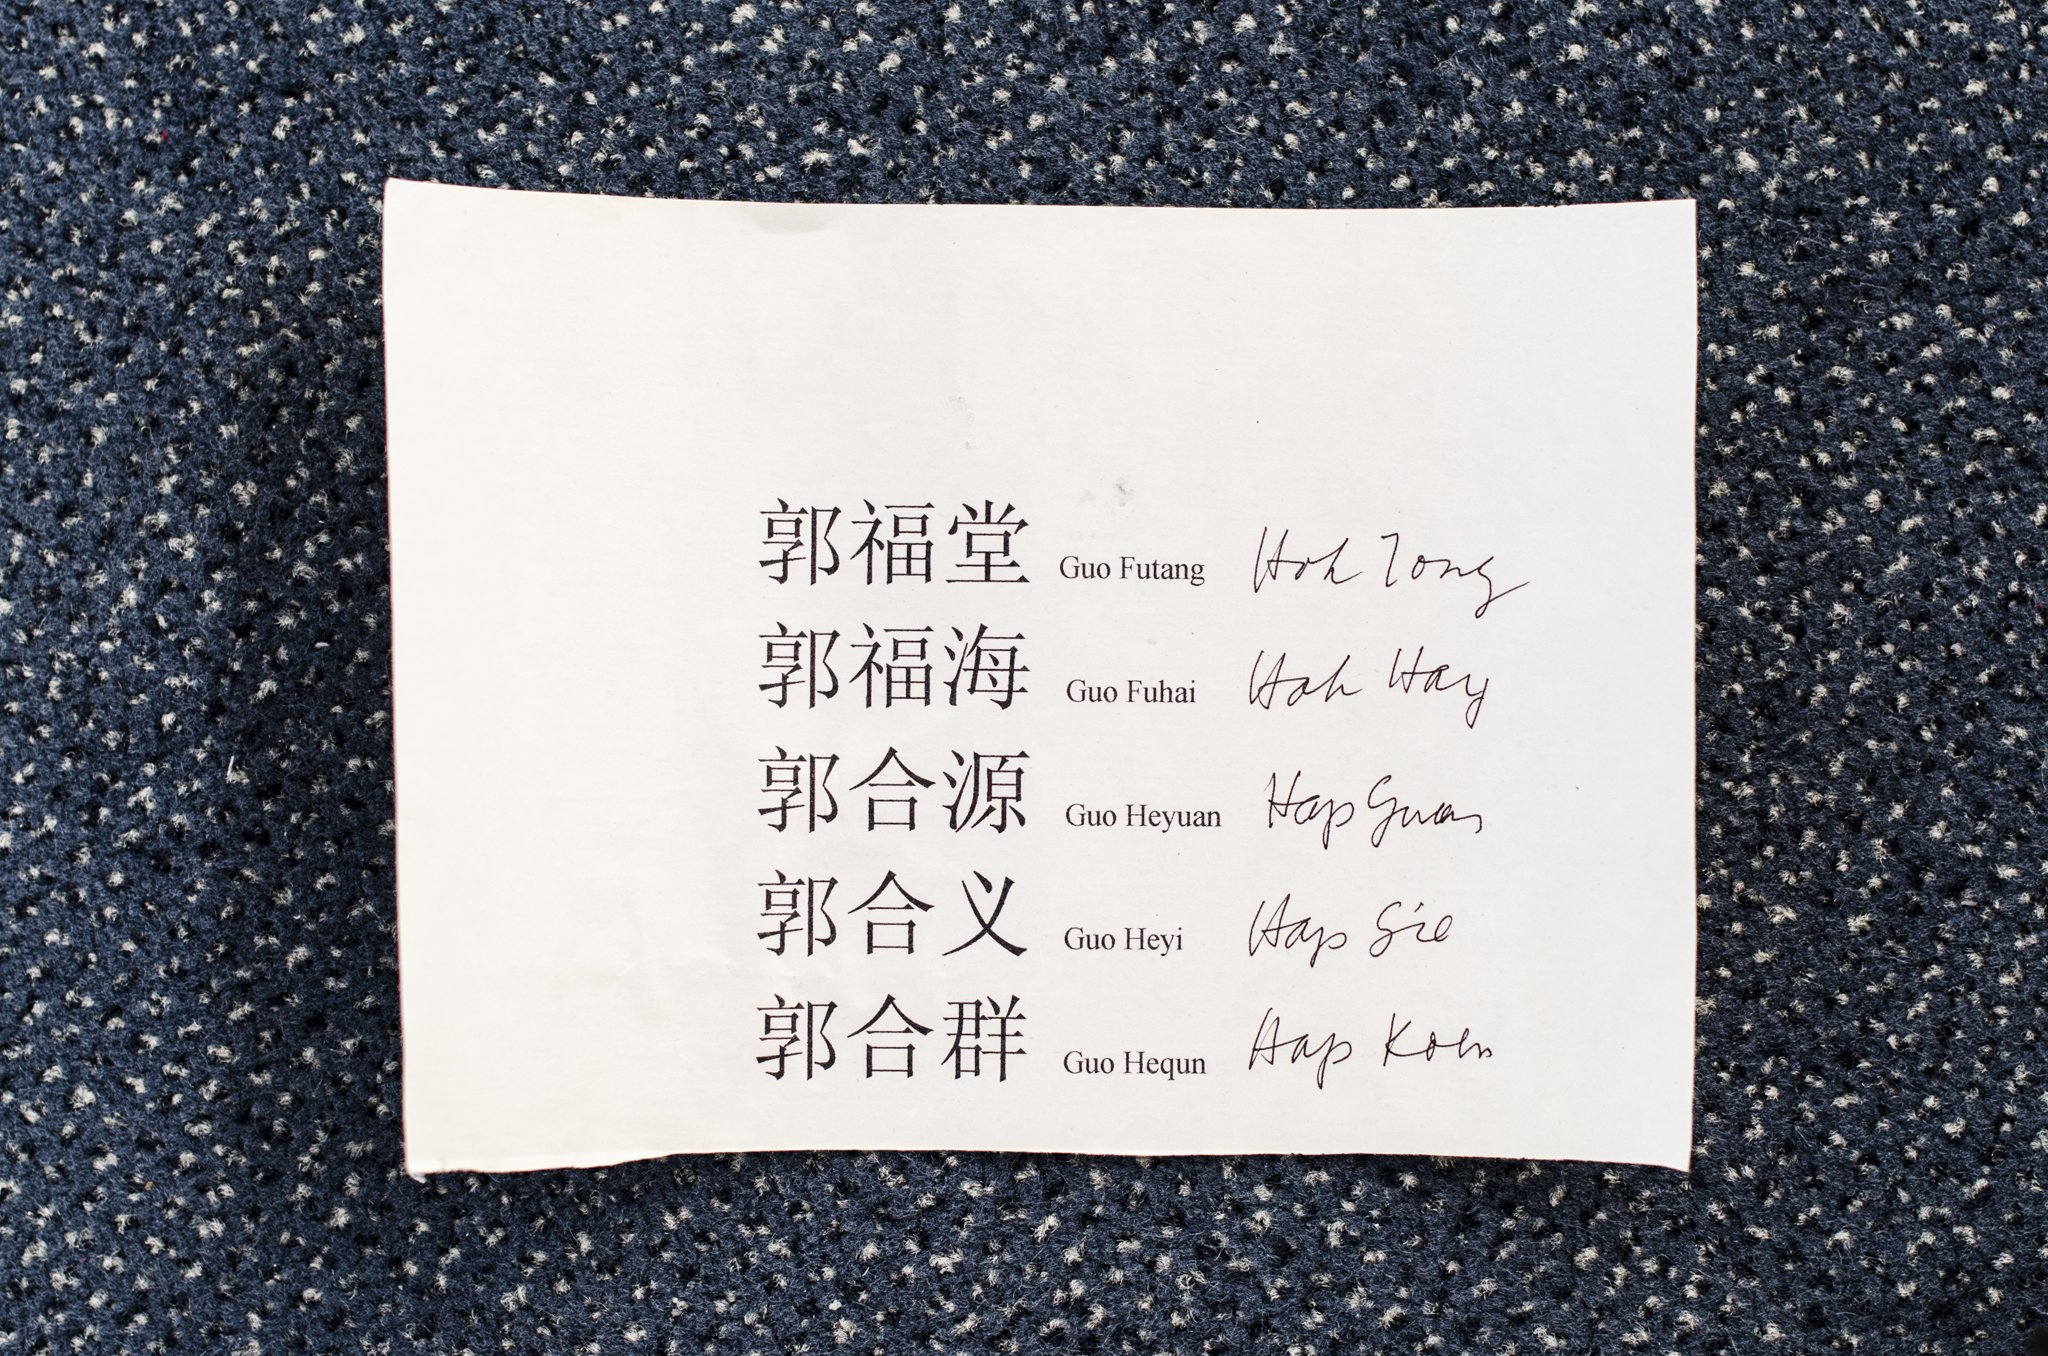 郭福堂 Guo Futang Hok Tong
郭福海 Guo Fuhai Hok Hay
郭合源 Guo Heyuan Hap Guan
郭合义 Guo Heyi Hap Gie
郭合群 Guo Hequn Hap Koen